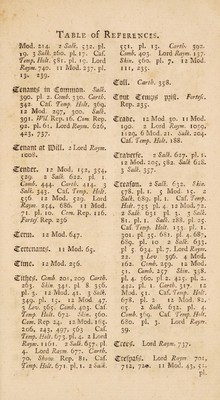 TABLE OF REFERENCES.
Mod. 214. 2 Salk. 232. pl.
19. 3 Salk. 260. pl. 17. Caf.
Temp. Holt. 581. pl. 19. Lord
Raym. 740. 11 Mod. 257. pl.
13. 239.
Tenants in Common. Salk.
390. pl. 2. Comb. 350. Carth.
342. Caf. Temp. Holt. 369.
12 Mod. 297, 300. Salk.
391. Wil. Rep. 16. Com. Rep.
92. pl. 61. Lord Raym. 626,
443, 737.
Tenant at Will. 2 Lord Raym.
1008.
Tender. 12 Mod. 152, 354,
529. 2 Salk. 622. pl. 1
Comb. 444. Carth. 414. 3
Salk. 343. Caf. Temp. Holt.
556. 12 Mod. 519. Lord
Raym. 254, 686. 11 Mod.
71. pl. 10. Com. Rep. 116,
Fortes. Rep. 236
Term. 12 Mod. 647.
Tertenants. 11 Mod. 65.
Time. 12 Mod. 256.
Tithes. Comb. 201, 209 Carth.
263. Skin. 341. pl. 8 356.
pl. 3. 12 Mod. 41. 3 Salk.
349. pl. 15. 12 Mod. 47.
5 Lev. 365. Comb. 403. Caf.
Temp. Holt. 672. Skin. 560.
Com. Rep 24. 12 Mod. 165.
206, 243, 497, 563 Caf.
Temp. Holt. 673. pl. 4. 2 Lord
Raym. 1161. 2 Salk. 657. pl.
4. Lord Raym. 677. Carth.
70. Show. Rep. 81. Caf.
Temp. Holt. 671. pl. 1. 2 Salk.
551. pl. 13. Carth. 392.
Comb. 403. Lord Raym. 137.
Skin. 560. pl. 7. 12 Mod.
111, 235.
Toll. Carth. 358.
Tout Temps Prist. Fortes.
Rep. 235.
Trade. 12 Mod. 30. 11 Mod.
190. 2 Lord Raym. 1070,
1129. 6 Mod. 21. Salk. 204.
Caf. Temp. Holt. 188.
Traverse. 2 Salk. 627. pl. 1.
12 Mod. 205, 582. Salk 628.
3 Salk. 357.
Treason. 2 Salk. 632. Skin.
578. pl. 1. 5 Mod. 15. 2
Salk. 689. pl. 1. Caf. Temp.
Holt. 733. pl. 4. 12 Mod. 72.
2 Salk 631. pl. 3. 7 Salk.
81. pl. 1. Salk. 288. pl. 25.
Caf. Temp. Holt. 133. pl. 1.
301. pl. 35. 681. pl. 4. 687,
689. pl. 10. 2 Salk. 633.
pl. 5. 634. pl. 7. Lord Raym.
22. 5 Lev. 396. 4 Mod.
162. Comb. 259. 12 Mod.
51. Comb. 257. Skin. 338.
pl. 4. 360. pl. 2. 425. pl. 2.
442. pl. 1. Carth. 317. 12
Mod. 51. Caf. Temp. Holt.
678. pl. 2. 12 Mod. 82,
95. 2 Salk. 632. pl. 4.
Comb. 369. Caf. Temp. Holt.
680. pl. 3. Lord Raym.
39.
Trees. Lord Raym. 737.
Trespass. Lord Raym 701,
712, 720. 11 Mod. 43, 50.
pl.